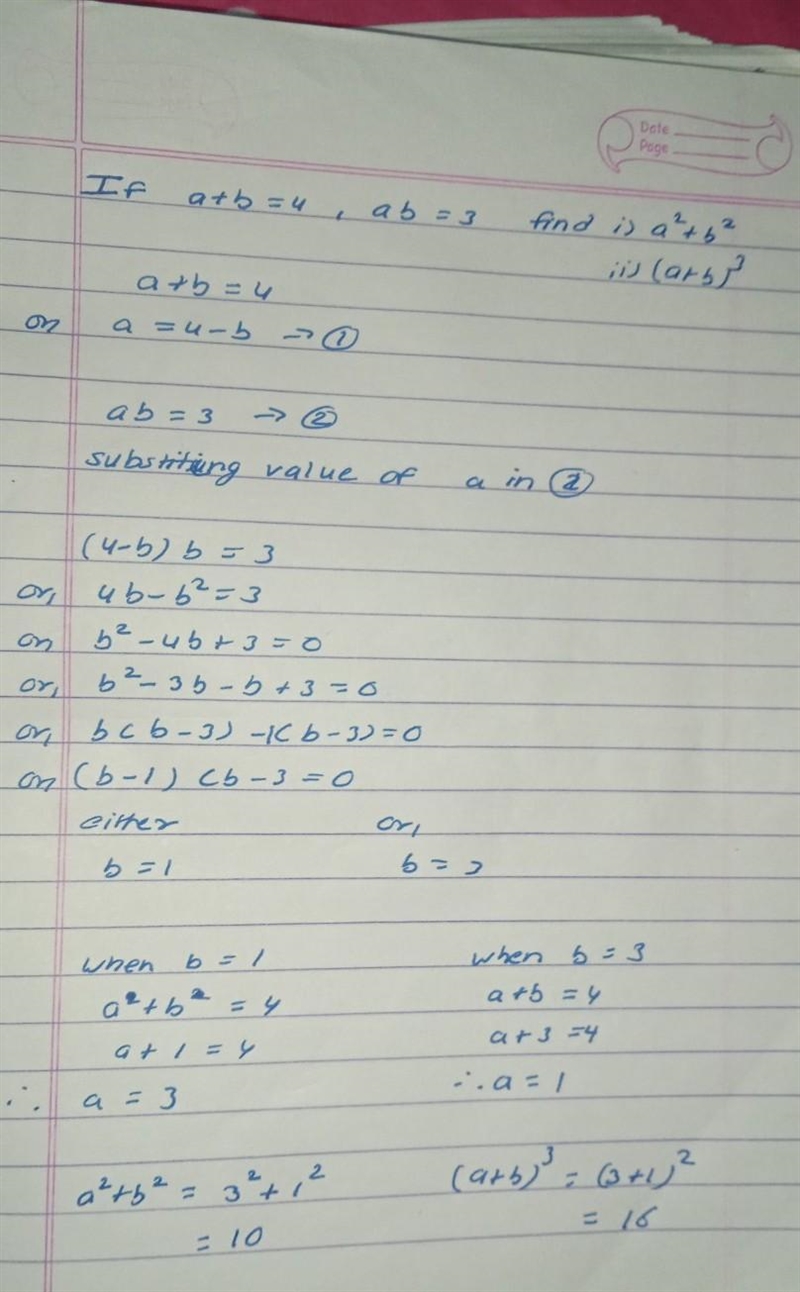 Date
Page
If a+b=4, ab=3 find i) a²+b²
ii) (a+b)³
a+b=4
or a=4-b → ①
ab=3 → ②
substituting value of a in ②
(4-b) b = 3
or, 4b-b²=3
or b²-4b+3=0
or, b²-3b-b+3=0
or, b(b-3)-1(b-3)=0
or (b-1) (b-3=0
either or,
b=1 b=3
when b=1 when b=3
a²+b²=4 a+b=4
a+1=4 a+3=4
∴ a=3 ∴ a=1
a²+b² = 3²+1² (a+b)³ = (3+1)²
= 10 = 16